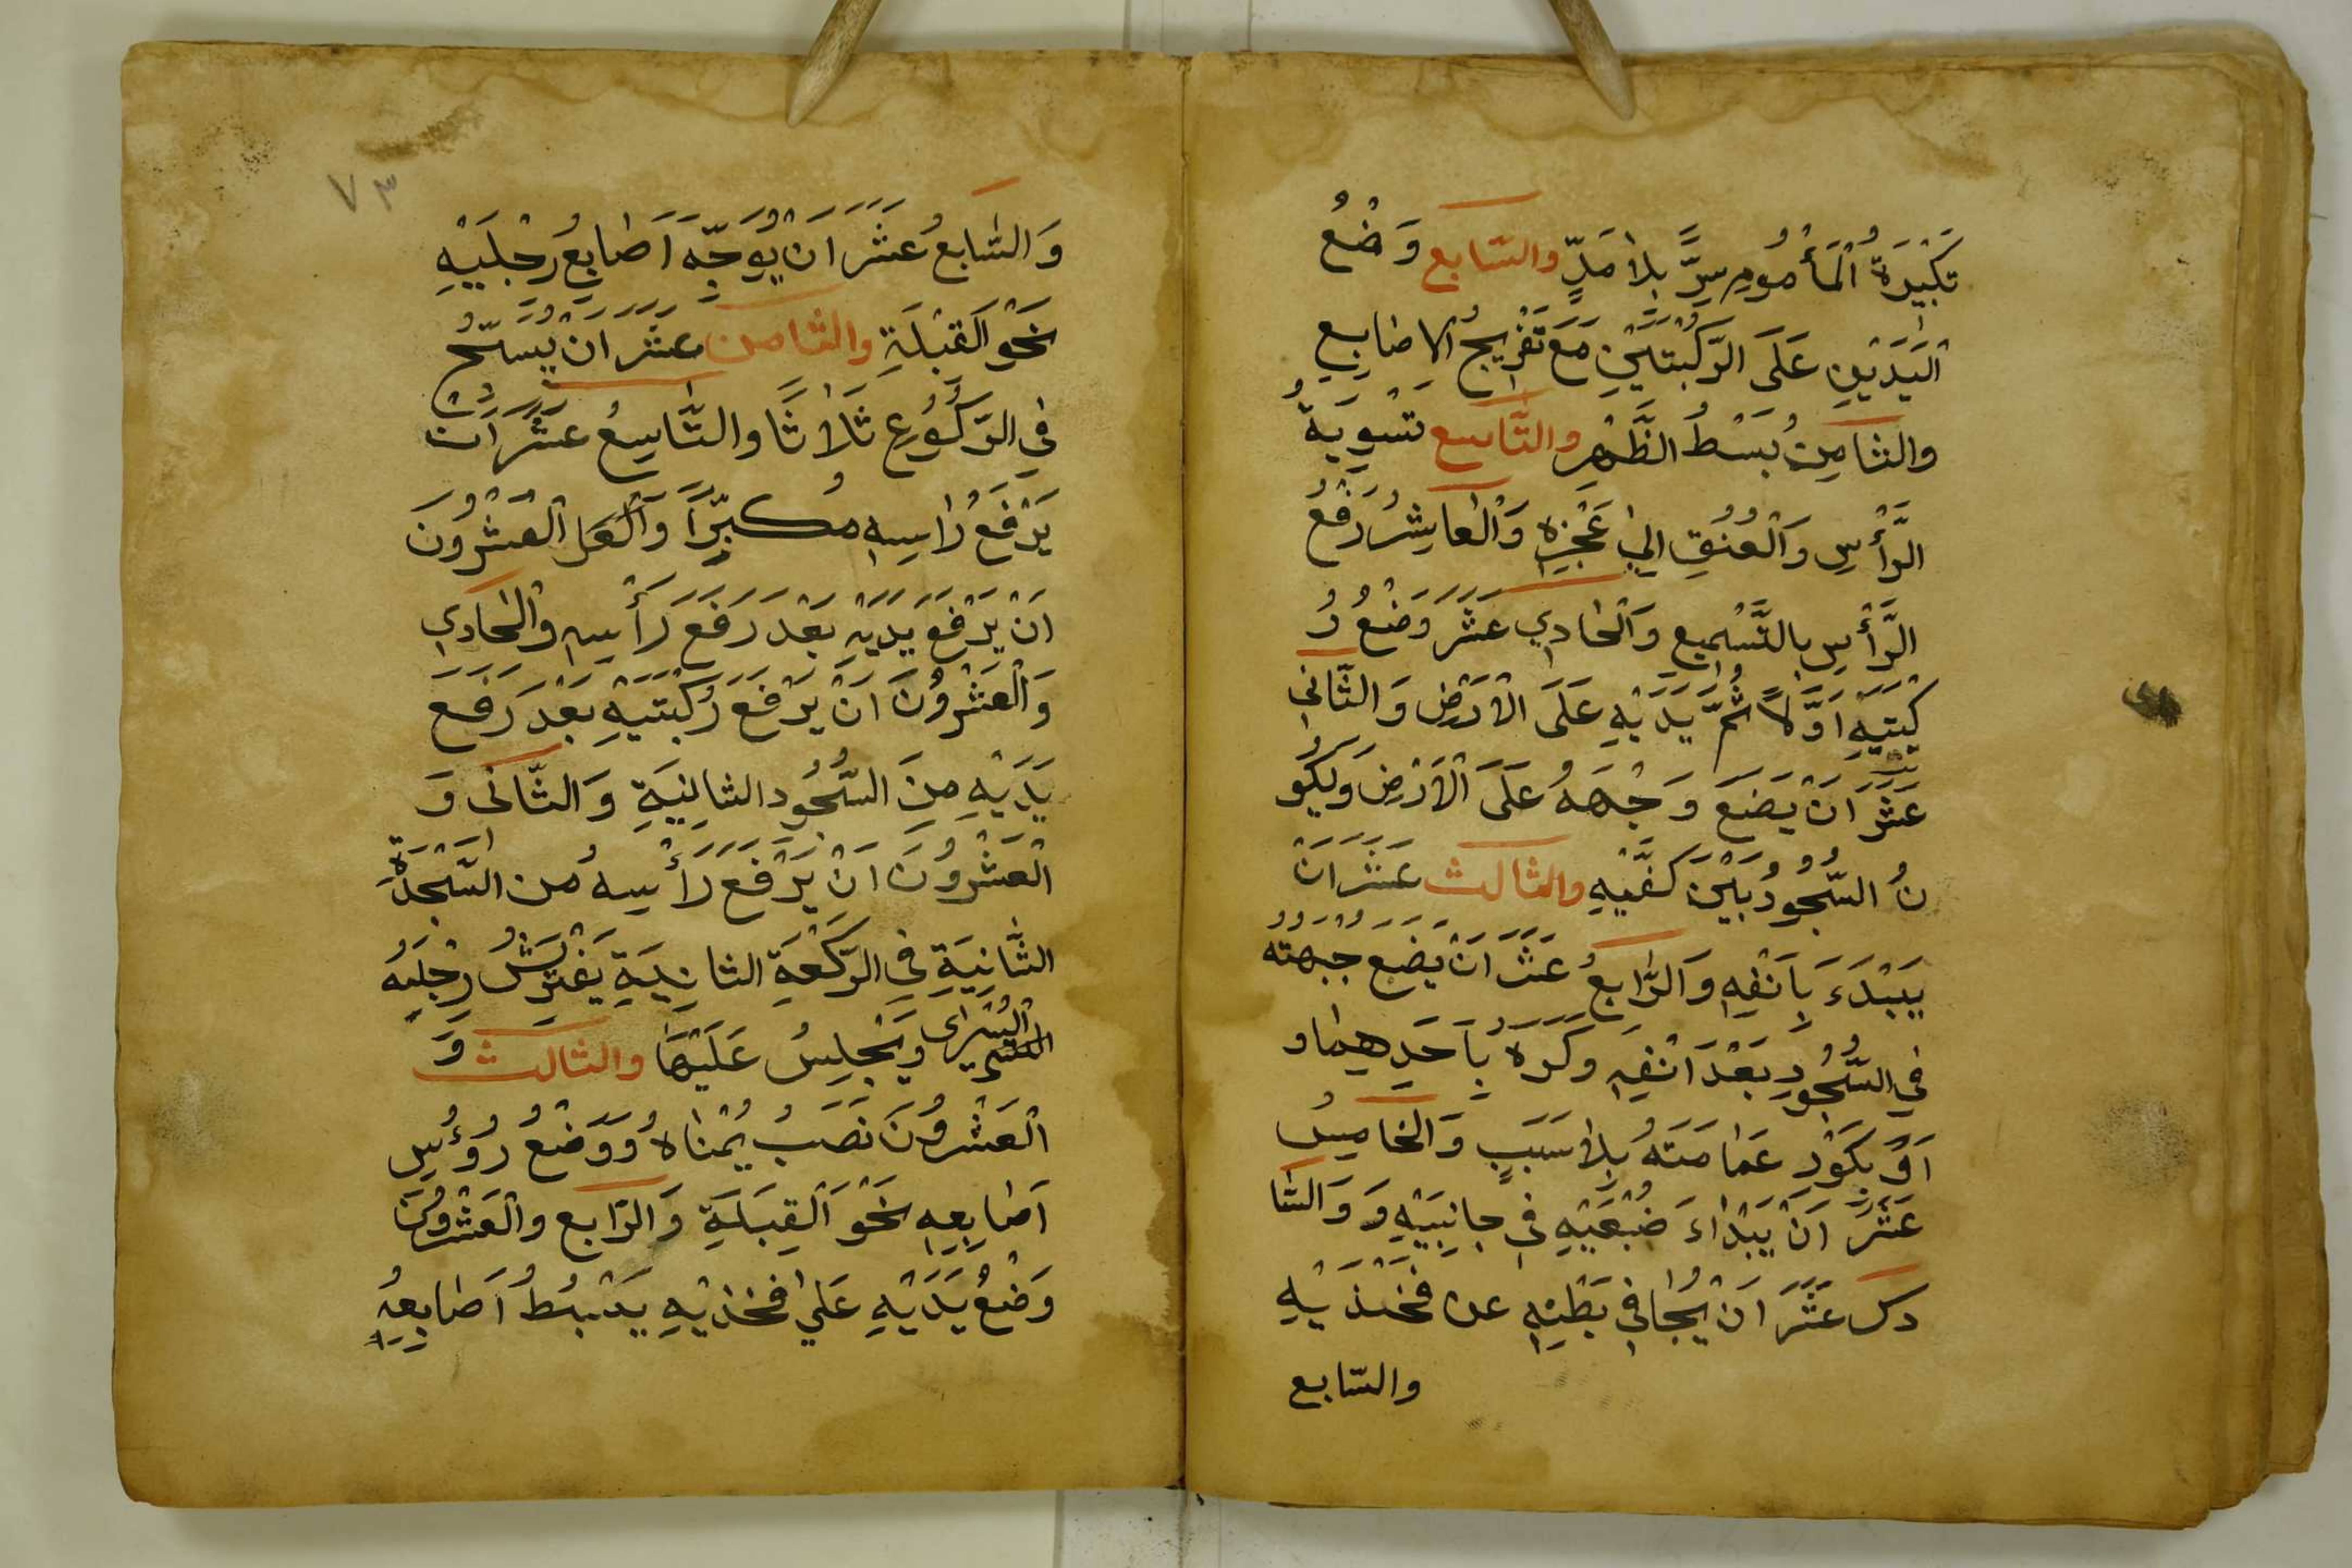 تَكْبِيرَةُ الْمَأْمُومِ سِرًّا بِلَا مَدٍّ والسّابع وَضْعُ
الْيَدَيْنِ عَلَى الرُّكْبَتَيْنِ مَعَ تَفْرِيجُ الاصَابِعِ
والثامِنُ بَسْطُ الظَّهْرِ والتّاسع تَسْوِيَةُ
الرَّأْسِ وَالْعُنُقِ اِلىٰ عَجْزِهِ وَالْعَاشِرُ رَفْعُ
الرَّأْسِ بِالتَّسْمِيعِ وَالْحَادِي عَشَرَ وَضْعُ رُ
كْبَتَيْهِ اَوَّلًا ثُمَّ يَدَيْهِ عَلَى الْاَرْضِ وَالثَّانِي
عَشَرَ اَنْ يَضَعَ وَجْهَهُ عَلَى الْاَرْضِ وَيَكُو
نُ السُّجُودُ بَيْنَ كَفَّيْهِ والثالث عَشَرَ اَنْ
يَبْدَءَ بِاَنْفِهِ وَالرَّابِعُ عَشَرَ اَنْ يَضَعَ جَبْهَتُهُ
فِي السُّجُودِ بَعْدَ اَنْفِهِ وَكَرِهَ بِاَحَدِهِمَا و
اَوْ بِكَوْرِ عَمَامَتَهُ بِلَا سَبَبٍ وَالْخَامِسُ
عَشَرَ اَنْ يَبْدَاءَ ضَبْعَيْهِ فِي جَانِبَيْهِ وَ وَالسَّا
دس عَشَرَ اَنْ يُجَافِي بَطْنِهِ عن فَخْذَيْهِ
والسّابع
٧٣
وَالسَّابِعُ عَشَرَ اَنْ يُوَجِّهَ اَصَابِعُ رِجْلَيْهِ
نَحْوَ الْقِبْلَةِ والثامن عَشَرَ اَنْ يُسَبِّحُ
فِي الرُّكُوعِ ثَلَاثًا والتَّاسِعُ عَشَرَ اَنْ
يَرْفَعَ رَاسِهِ مُكَبِّرًا وَالْعِشْرُونَ
اَنْ يَرْفَعَ يَدَيْهِ بَعْدَ رَفَعَ رَأْسِهِ والْحَادِي
وَالْعَشْرُونَ اَنْ يَرْفَعَ رُكْبَتَيْهِ بَعْدَ رَفَعَ
يَدَيْهِ مِنَ السُّجُودِ الثانِيَةِ وَالثَّانى وَ
الْعَشْرُونَ اَنْ يَرْفَعَ رَأْسِهُ من السَّجْدَةِ
الثَّانِيَةِ فِي الرَّكْعَةِ الثانِيَةِ يَفْتَرِشُ رِجْلَيهُ
الْيُسْرٰاى وَيَجْلِسُ عَلَيْهَا والثالث وَ
الْعَشْرُونَ نَصْبُ يُمْنَاهُ وَوَضْعُ رُوُٴسِ
اَصَابِعِهِ نَحْوَ الْقِبَلَةِ وَالرَّابع والْعَشْرُونَ
وَضْعُ يَدَيْهِ عَلىٰ فَخْذَيْهِ يَبْسُطُ اَصَابِعِهِ